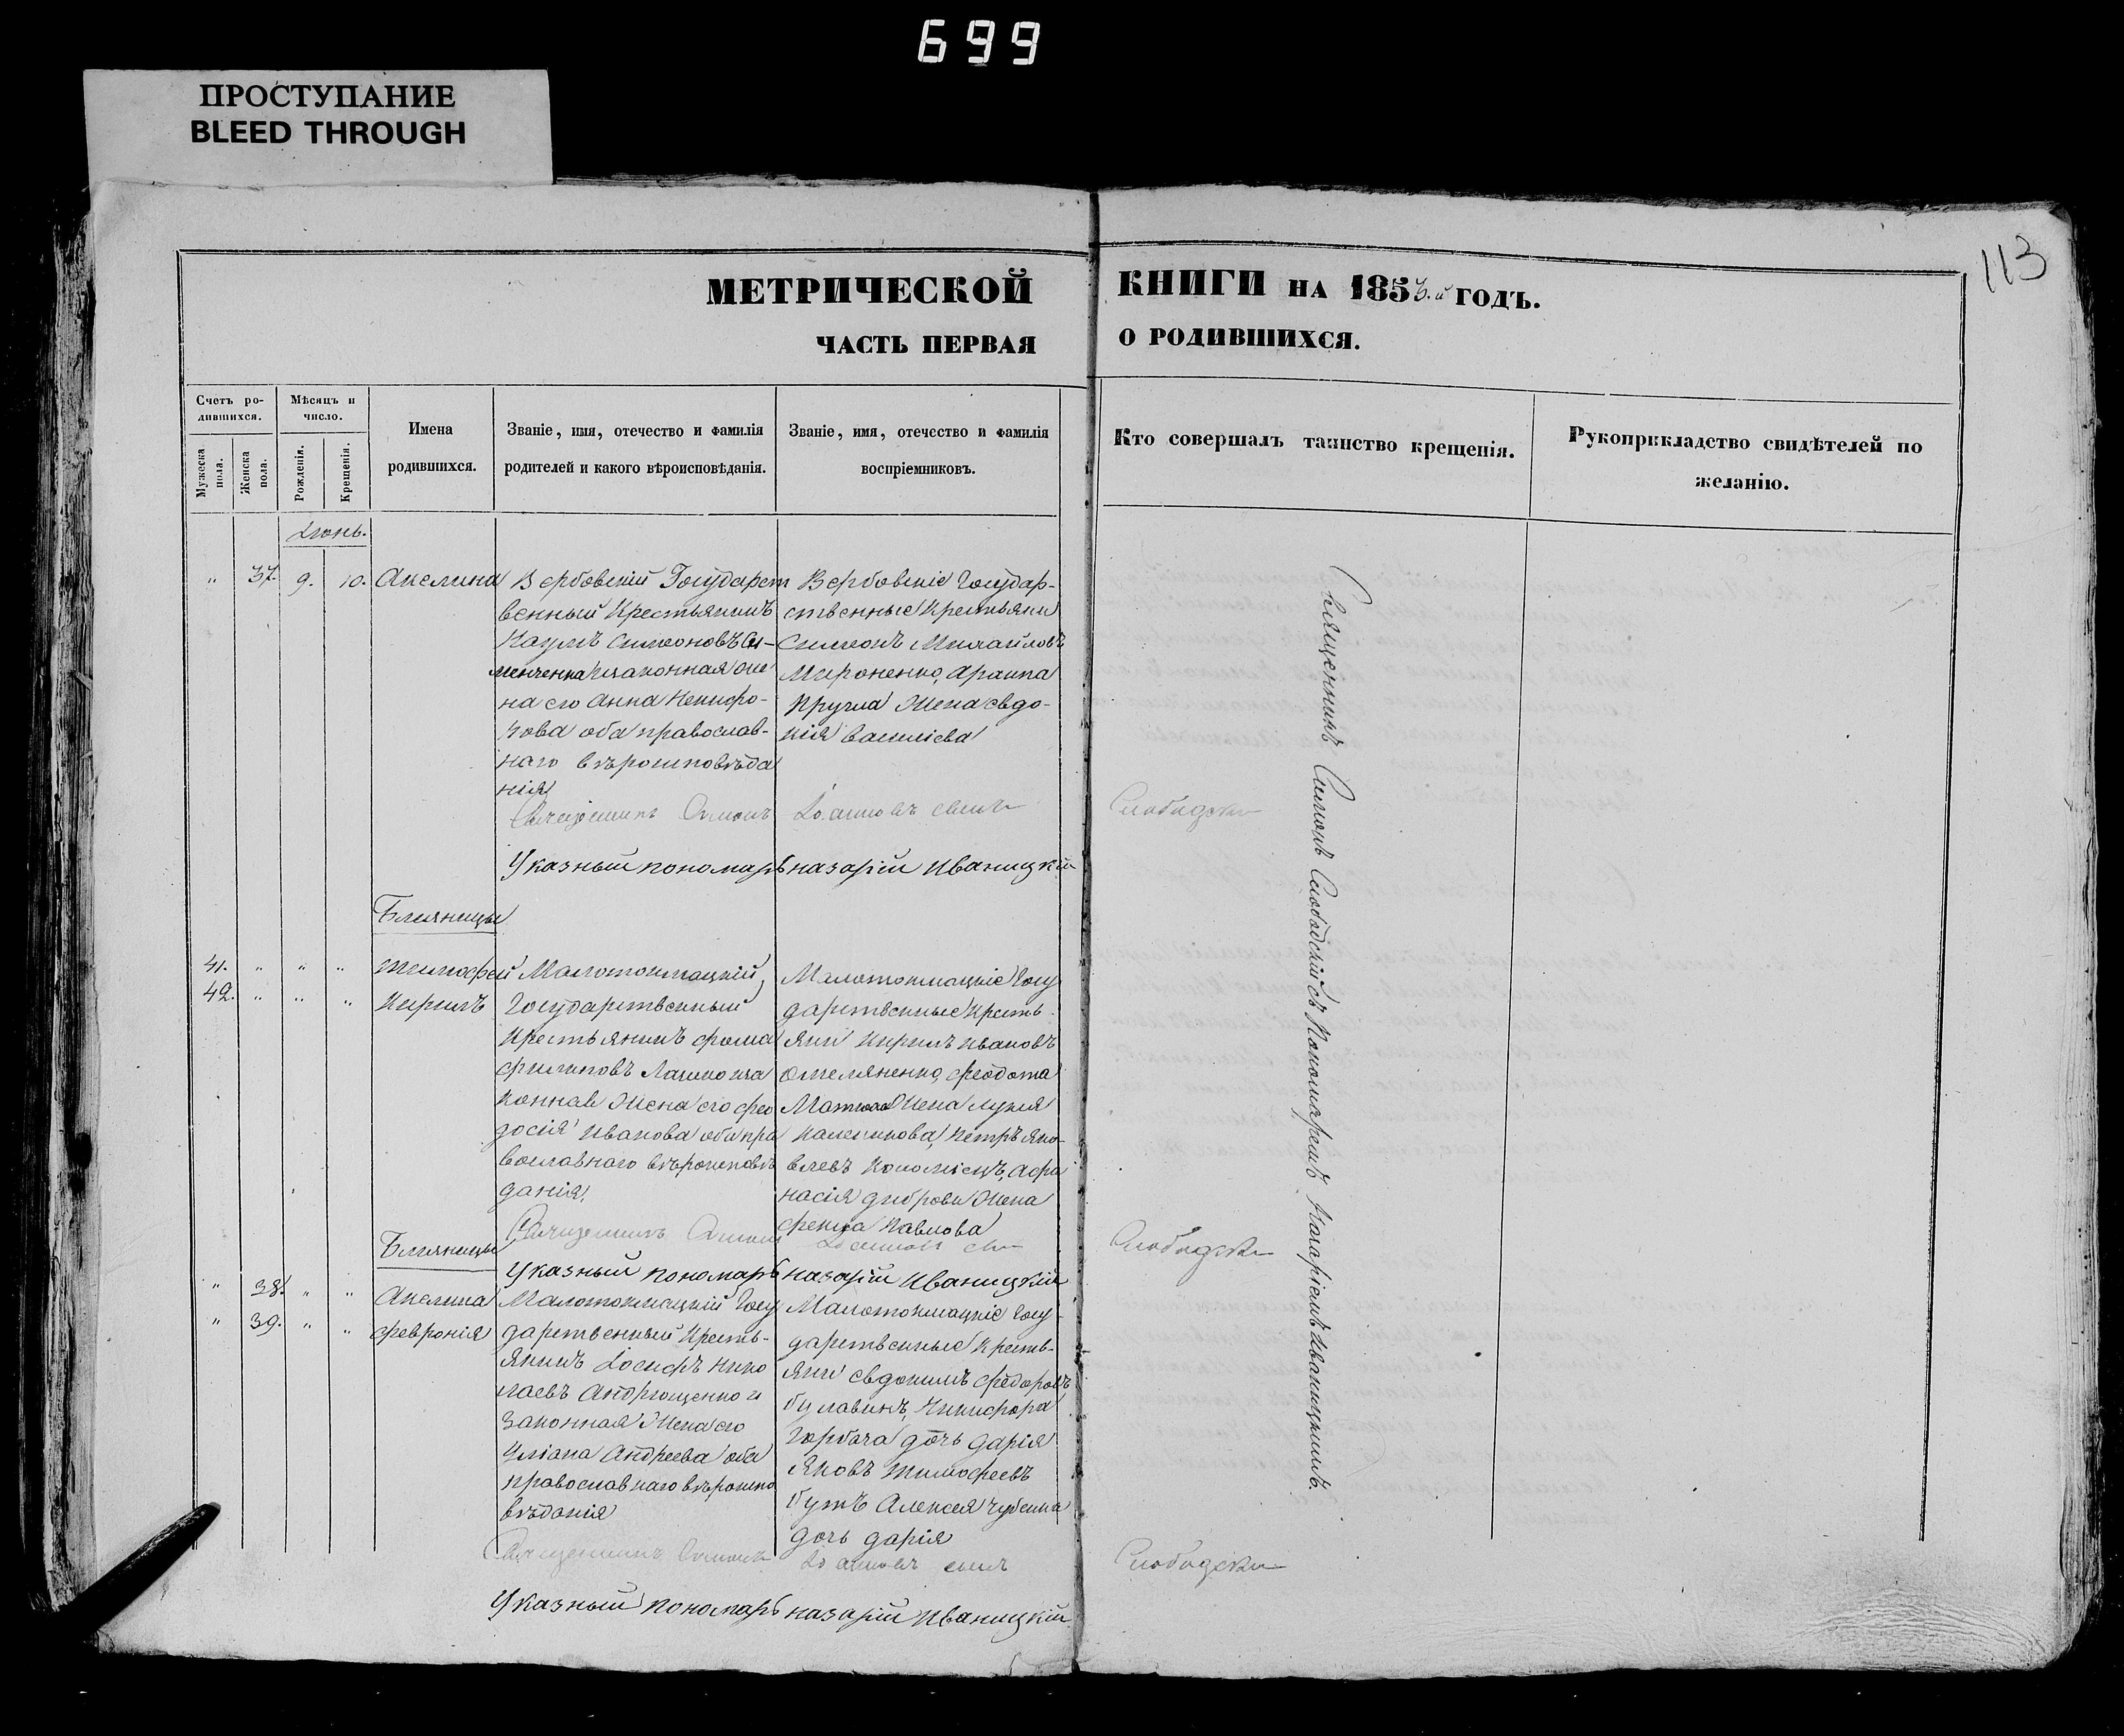 699
ПРОСТУПАНИЕ
BLEED THROUGH
113
МЕТРИЧЕСКОЙ КНИГИ НА 1853.й ГОДЪ.
ЧАСТЬ ПЕРВАЯ О РОДИВШИХСЯ.
Счетъ ро-
дившихся.
Мѣсяцъ и
число.
Мужеска пола.
Женска пола.
Рожденія.
Крещенія.
Имена
родившихся.
Званіе, имя, отечество и фамилія
родителей и какого вѣроисповѣданія.
Званіе, имя, отечество и фамилія
воспріемниковъ.
Кто совершалъ таинство крещенія.
Рукоприкладство свидѣтелей по
желанію.
Іюнь.
" 37. 9. 10. Акелина
Вербовскій Государст
венный Крестьянинъ
Наумъ Симеоновъ
законная же
на его Анна Никифо-
рова оба православ-
наго вѣроисповѣда
нія
Вербовскіе Государ-
ственные Крестьяни
Симеонъ Михайловъ
Мироненко, Архипа
Кругла Жена Евдо-
кія Василіева
Священникъ Симонъ Іоанновъ сынъ Слободскій
Указный пономарь Назарій Иваницкій
Близницы
41. " " " Тимофей
42. " " " Кирилъ
Малотокмацкій
Государственный
Крестьянинъ Фома
Филиповъ за
конная Жена его Фео
досія Иванова оба пра
вославнаго вѣроисповѣ
данія.
Малотокмацкіе Госу
дарственные Кресть
яни Кирилъ Ивановъ
Омеляненко, Феодота
Жена Лукия
Петръ Яко-
влевъ Коломіецъ, Афа
насія Дибровы Жена
Павлова
Священникъ Симонъ Іоанновъ Слободскій
Указный пономарь Назарій Иваницкій
Близницы
" 38. " " Акелина
" 39. " " Февронія
Малотокмацкій Госу
дарственный Кресть-
янинъ Іосифъ Нико
лаевъ Андрющенко и
Законная Жена его
Уліана Андреева оба
православнаго вѣроиспо
вѣданія
Малотокмацкіе Госу
дарственные Кресть-
яни Евдокимъ Федоровъ
Булавинъ, Никифора
Горбача дочь Дарія
Яковъ Тимофеевъ
Бутъ Алексея
дочь Дарія
Священникъ Симонъ Іоанновъ сынъ Слободскій
Указный пономарь Назарій Иваницкій
Священникъ Симонъ Слободскій съ Пономаремъ Назаріемъ Иваницкимъ.